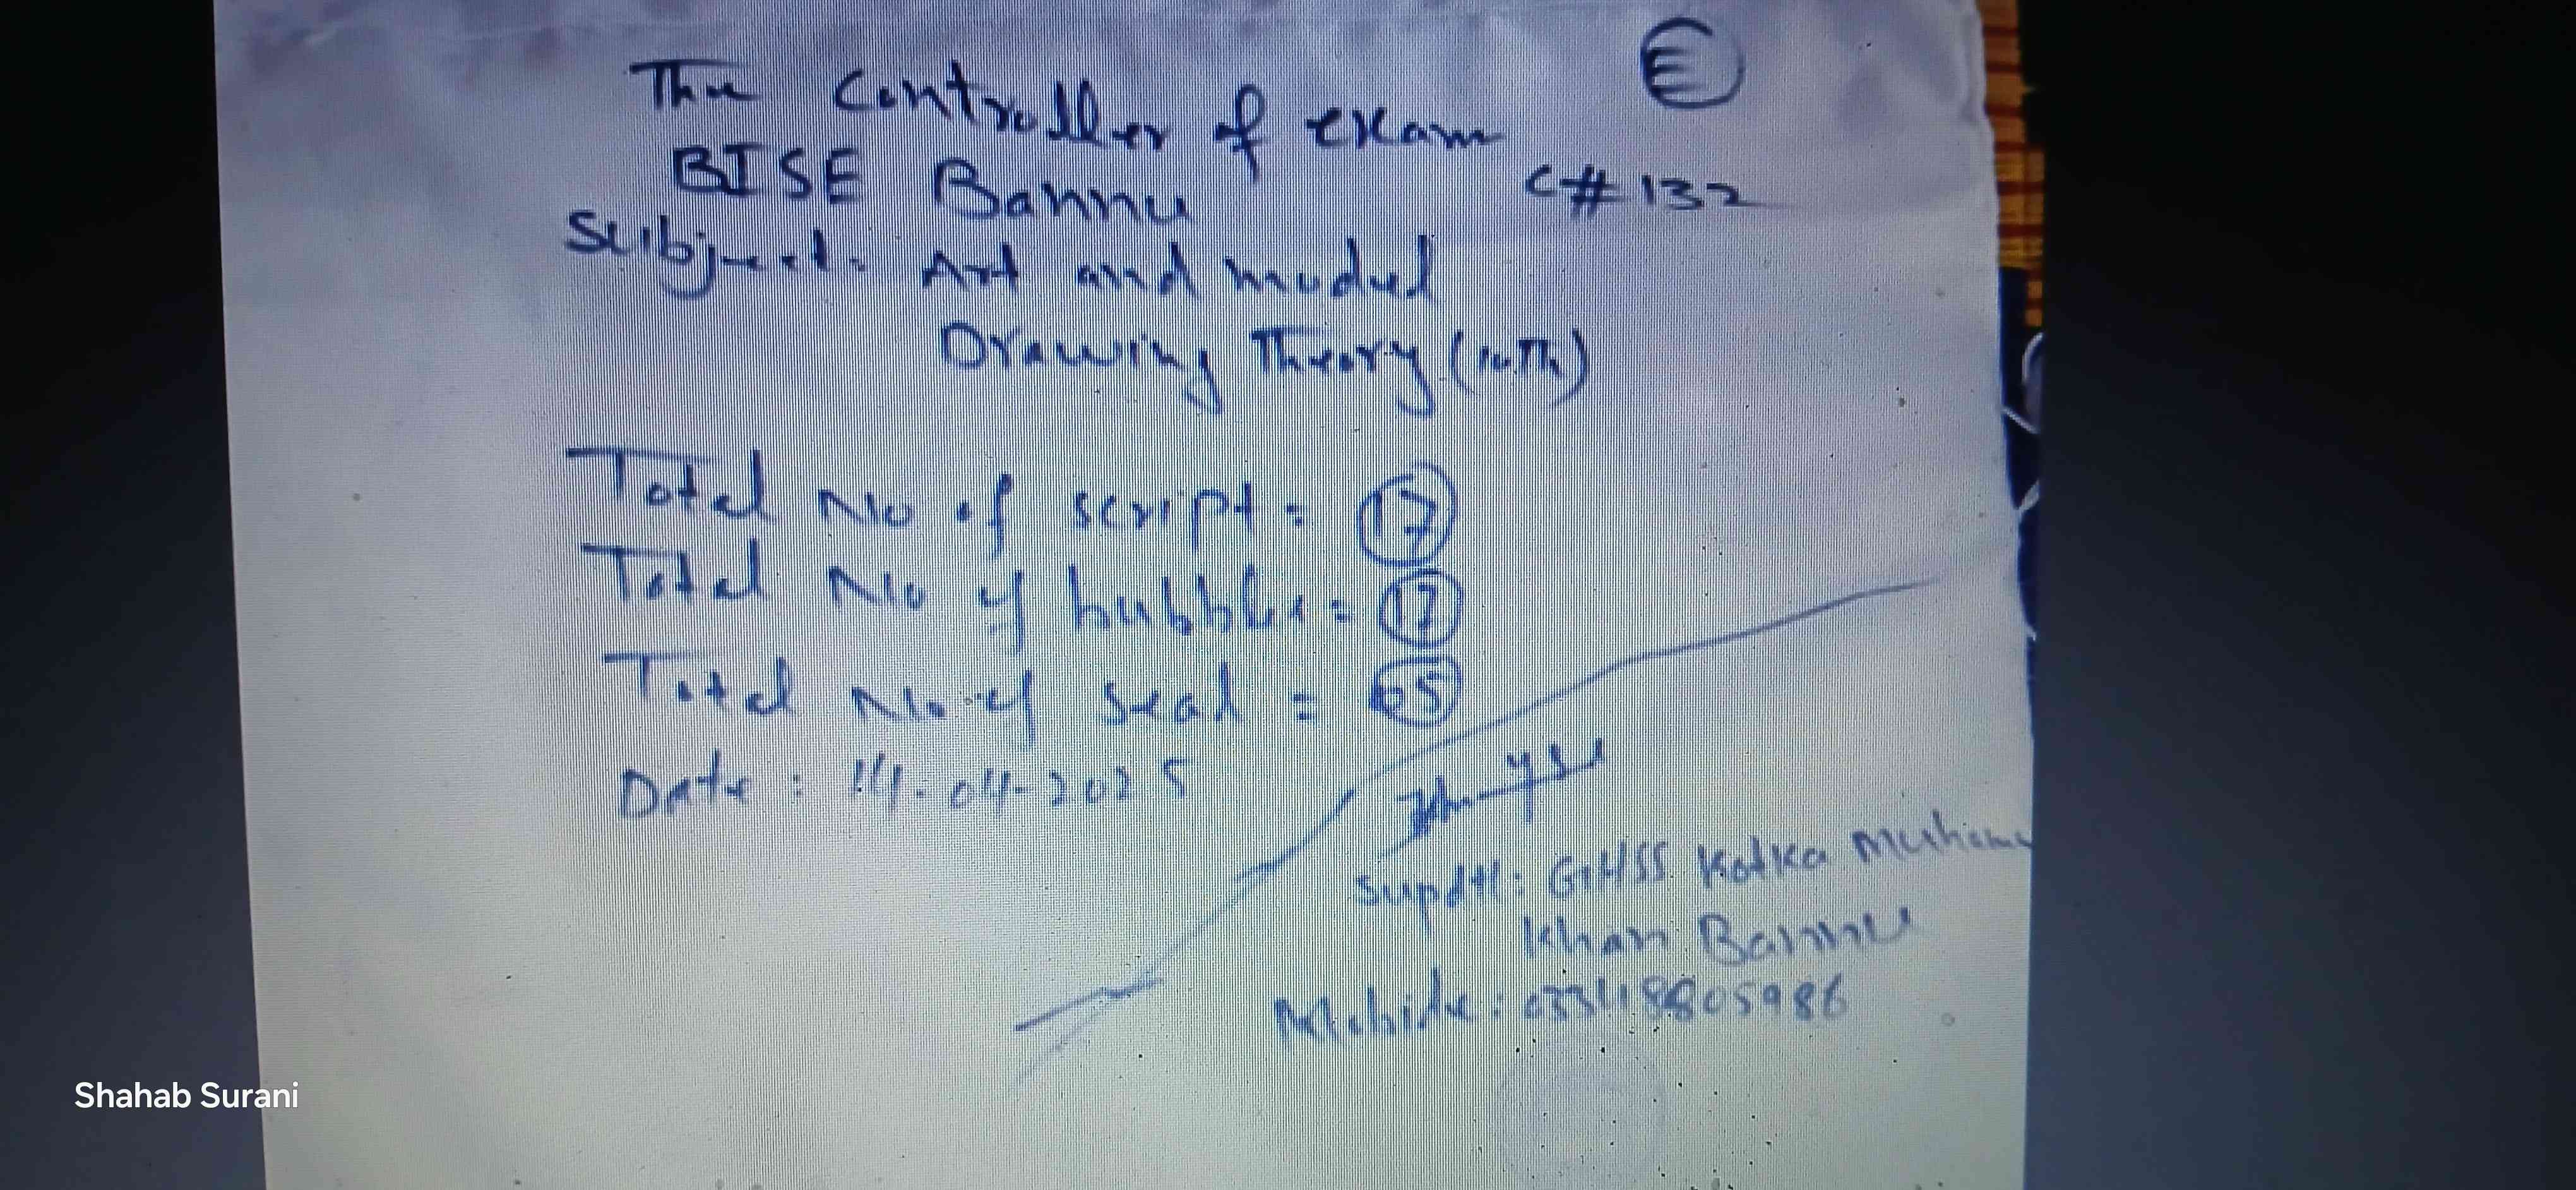 E
The Controller of exam
BISE Bannu
C# 132
Subject: Art and model
Drawing Theory (10Th)
Total No of script = 17
Total No of bubble = 17
Total No of seal = 05
Date : 14-04-2025
Supdtt: GHSS Kotka Muhamm
Khan Bannu
Mobile : 03348805986
Shahab Surani